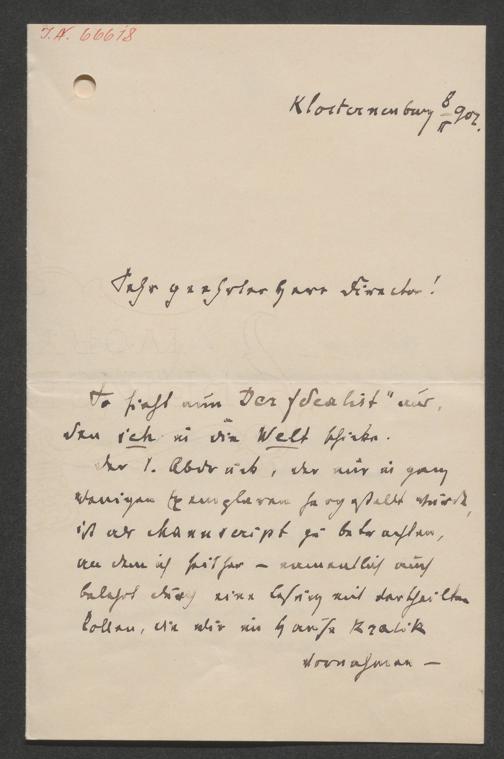 J.N. 66678
Klosterneuburg 8/II 902.
Sehr geehrter Herr Director!
So sieht nun "Der Idealist" aus,
den ich in die Welt schicke.
Der 1. Abdruck, der nur in ganz
wenigen Exemplaren hergestellt wurde,
ist als Manuscript zu betrachten,
an dem ich seither – namentlich auch
belehrt durch eine Lesung mit vertheilten
Rollen, die wir im Hause Kralik
vornahmen –